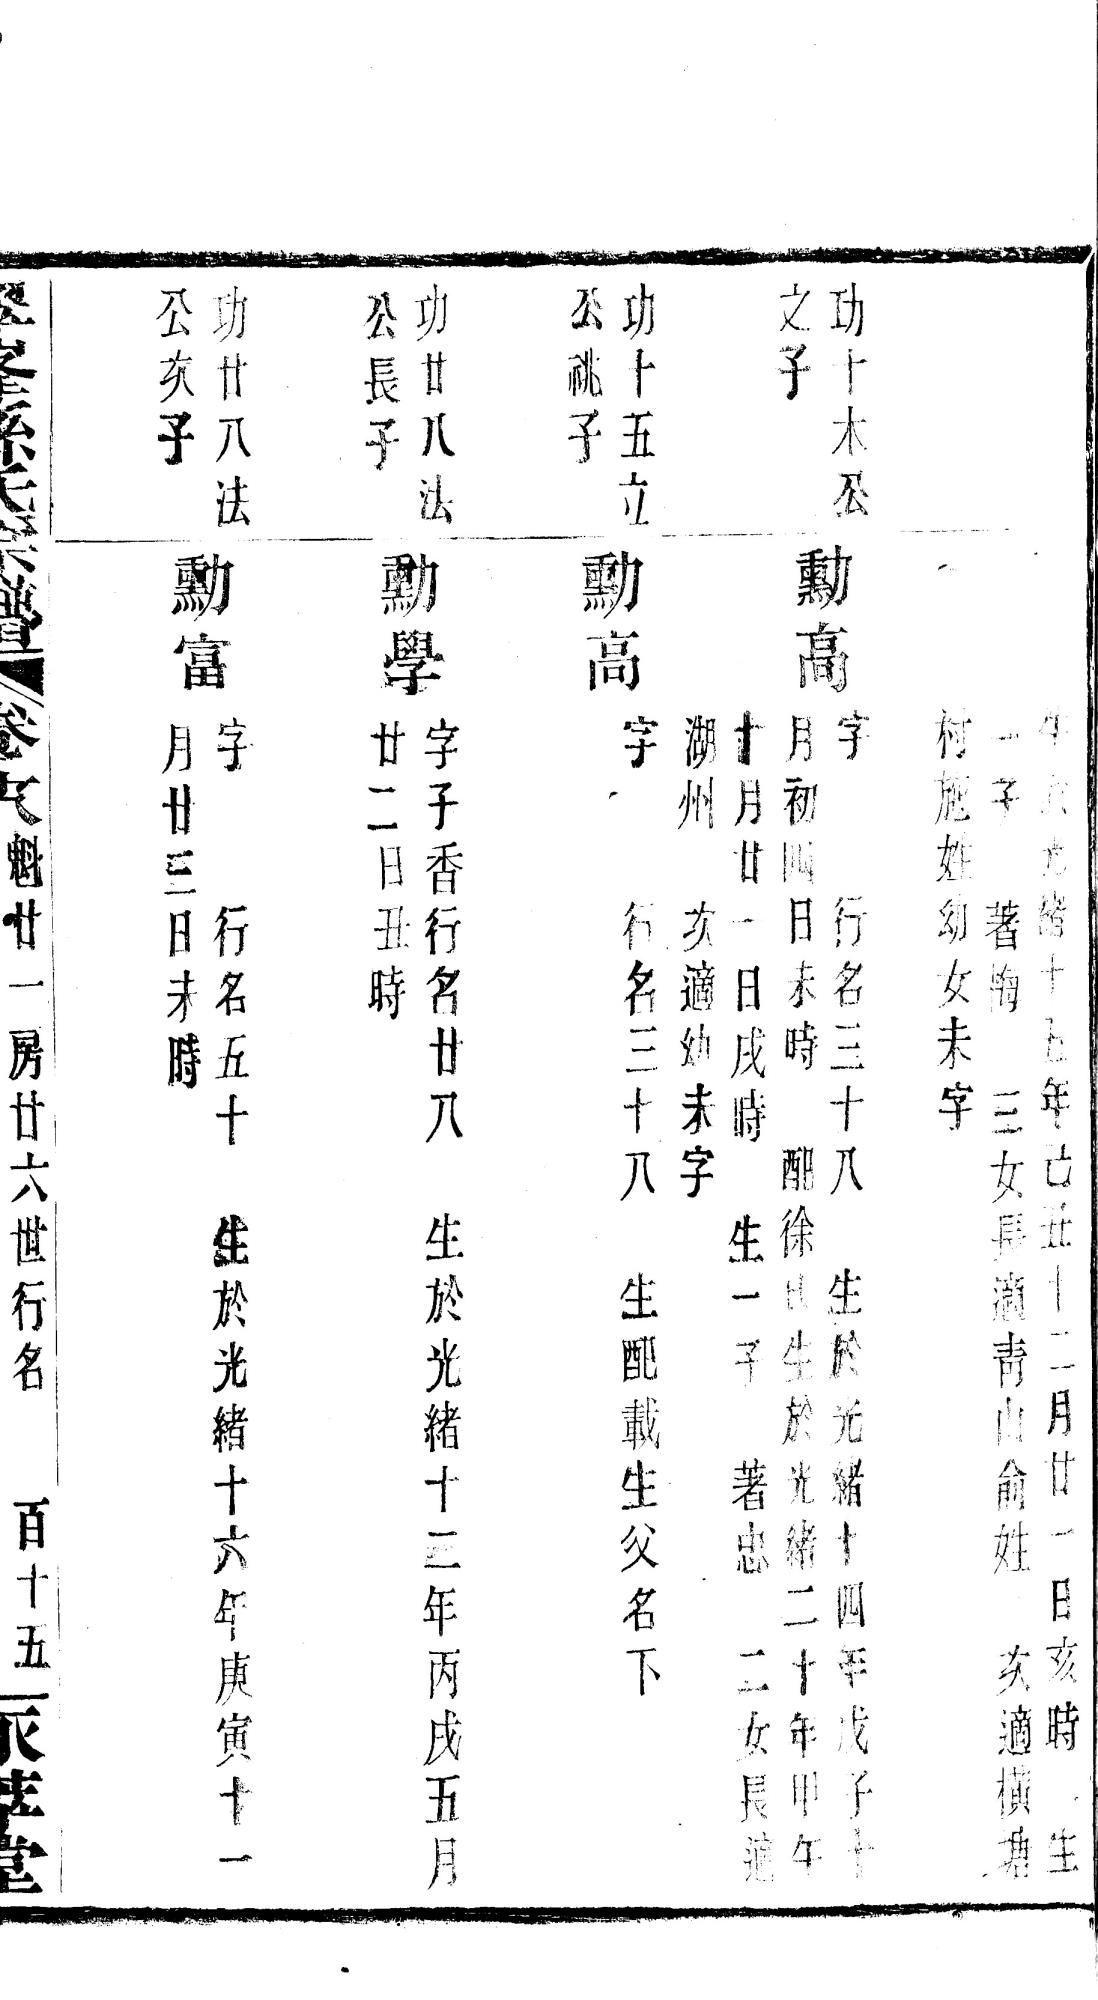 生於光緒十五年己丑十二月廿一日亥時 生
一子 著梅 三女長適青山俞姓 次適橫塘
村施姓幼女未字
功十木公
之子
勳高
字 行名三十八 生於光緒十四年戊子十
月初四日未時 配徐氏生於光緒二十年甲午
十月廿一日戌時 生一子 著忠 二女長適
湖州 次適 幼未字
功十五立
公祧子
勳高
字 行名三十八 生配載生父名下
功廿八法
公長子
勳學
字子香行名廿八 生於光緒十二年丙戌五月
廿二日丑時
功廿八法
公次子
勳富
字 行名五十 生於光緒十六年庚寅十一
月廿三日未時
孫氏宗譜 卷 魁廿一房廿六世行名 百十五 堂